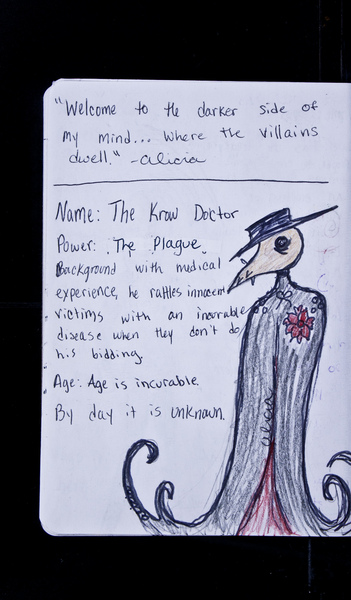 "Welcome to the darker side of
my mind... where the villains
dwell." -alicia
Name: The Krow Doctor
Power: "The Plague"
Background with medical
experience, he rattles innocent
victims with an incurable
disease when they don't do
his bidding.
Age: Age is incurable.
By day it is unknown.